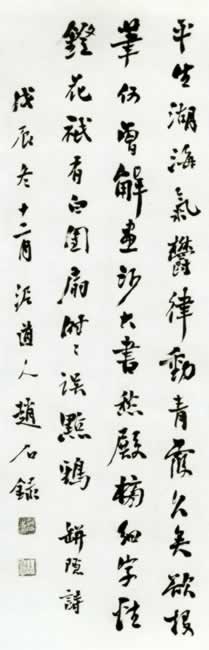 平生湖海氣鬱律動青霞久矣欲投
筆何曾解畫沙大書愁殿榜細字怯
鐙花祇有白團扇時〻誤點鴉 缾隱詩
戊辰冬十二月泥道人趙石錄